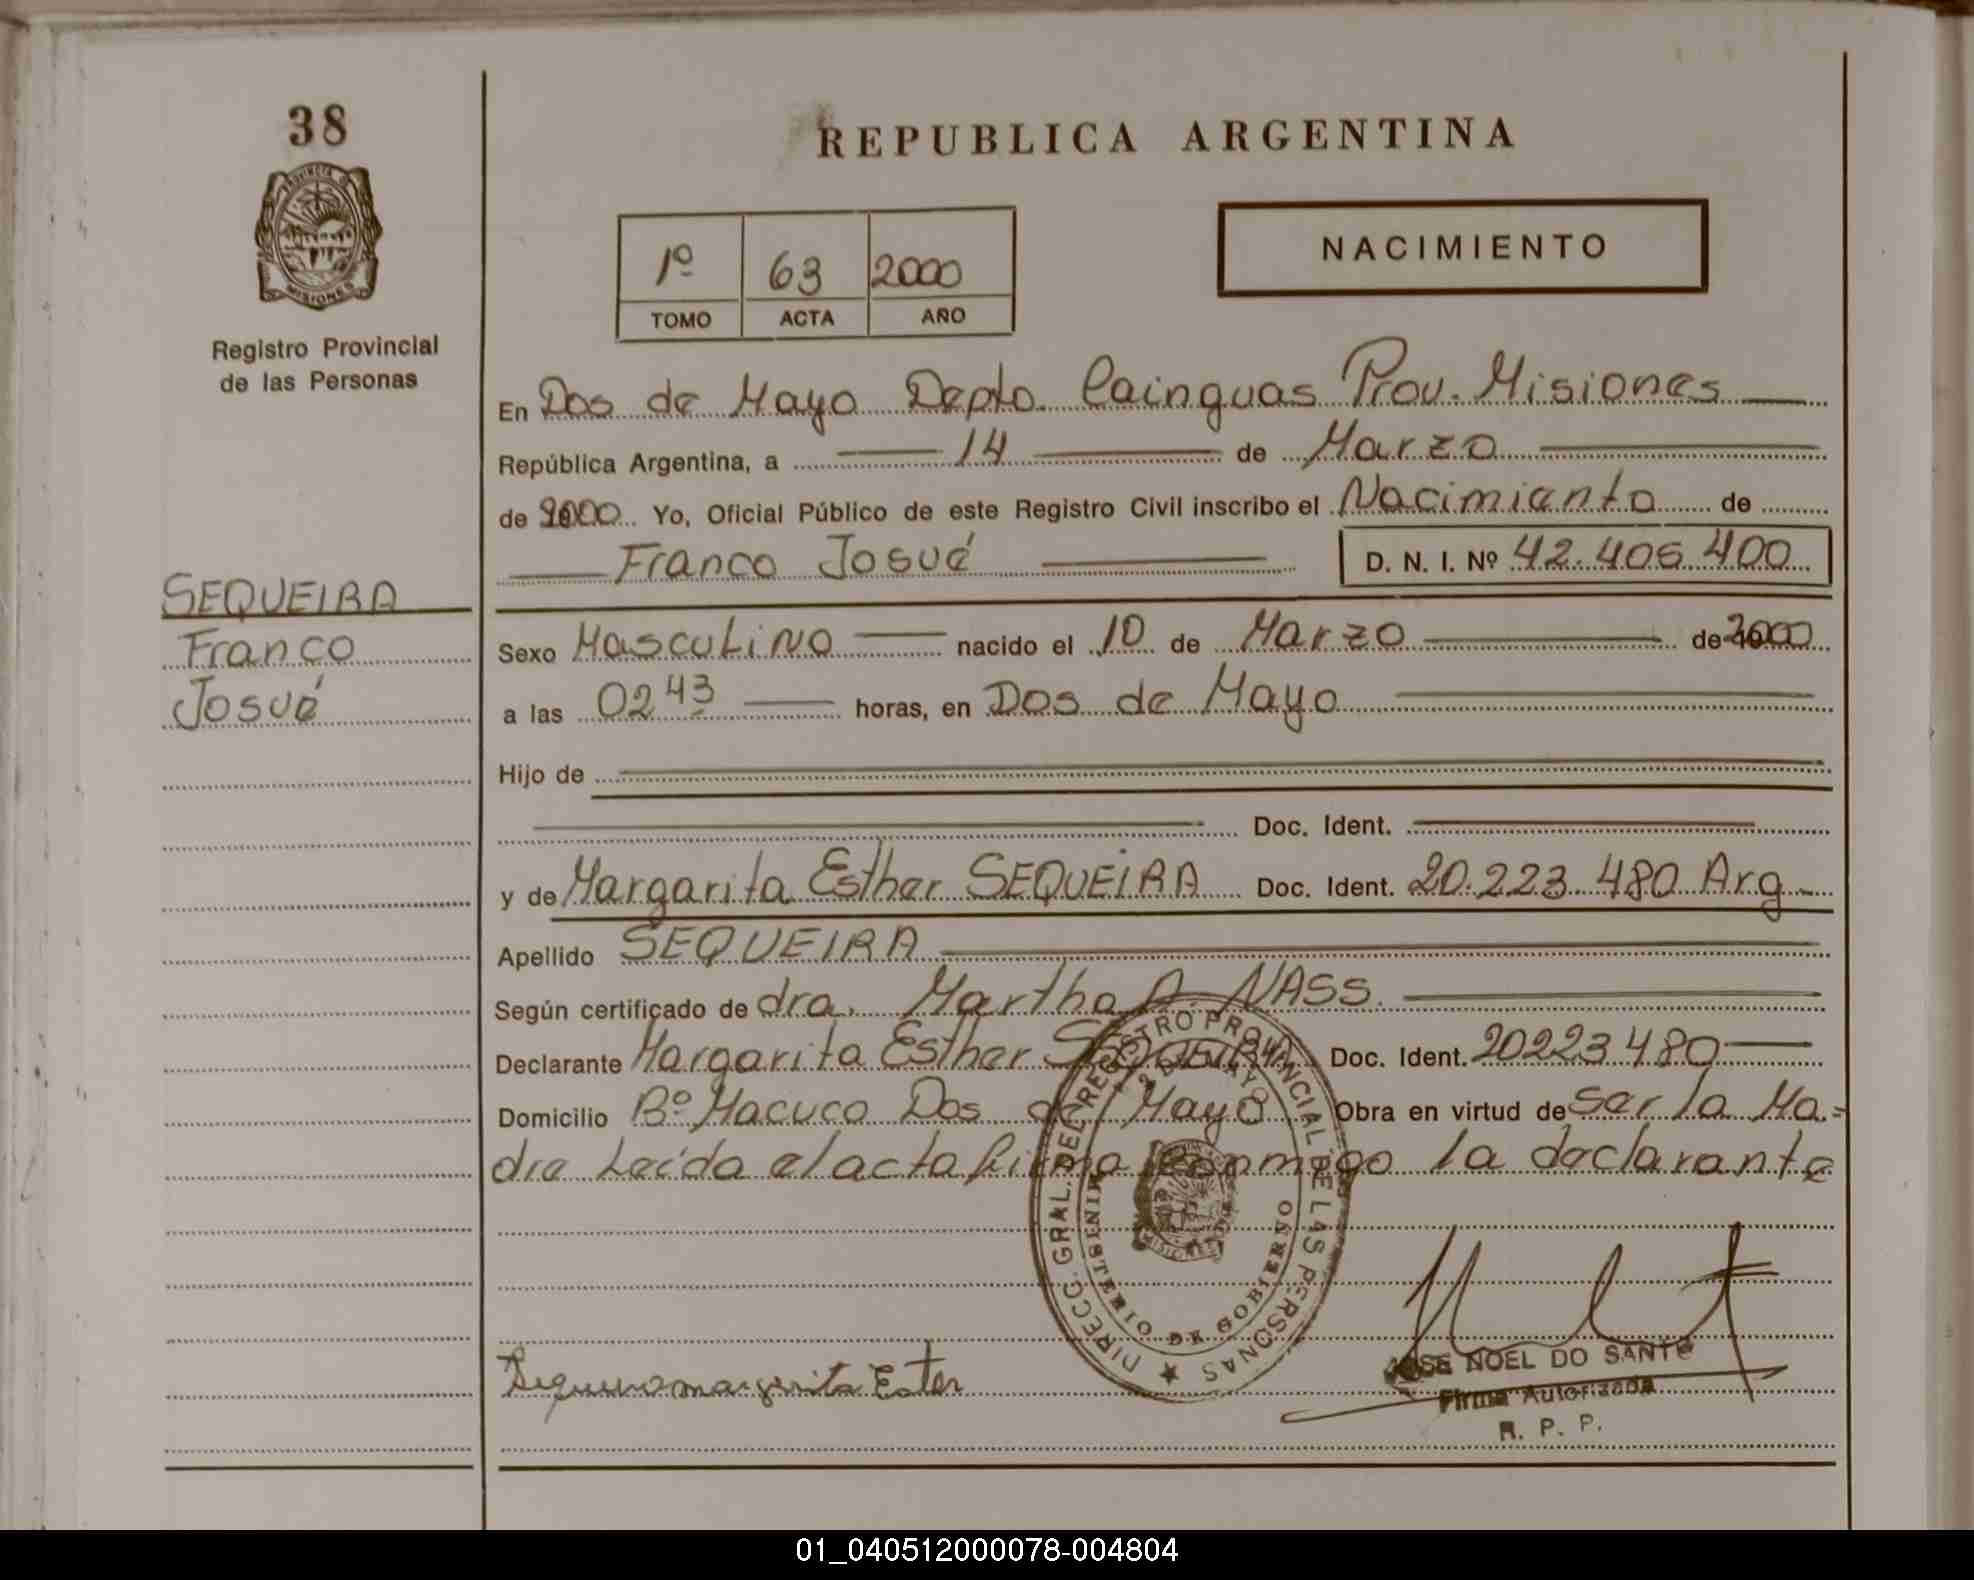 38
PROVINCIA DE
MISIONES
Registro Provincial
de las Personas
SEQUEIRA
Franco
Josué
REPUBLICA ARGENTINA
1º 63 2000
TOMO ACTA AÑO
NACIMIENTO
En Dos de Mayo Depto. Cainguas Prov. Misiones
República Argentina, a 14 de Marzo
de 2000 Yo, Oficial Público de este Registro Civil inscribo el Nacimiento de
Franco Josué D. N. I. Nº 42.406.400
Sexo Masculino nacido el 10 de Marzo de 2000
a las 02 43 horas, en Dos de Mayo
Hijo de
Doc. Ident.
y de Margarita Esther SEQUEIRA Doc. Ident. 20.223.480 Arg.
Apellido SEQUEIRA
Según certificado de dra. Martha A. NASS.
Declarante Margarita Esther SEQUEIRA Doc. Ident. 20223480
Domicilio Bº Macuco Dos de Mayo Obra en virtud de ser la Ma-
dre Leída el acta firma conmigo la declarante
DIRECC. GRAL. DEL REGISTRO PROVINCIAL DE LAS PERSONAS
2 DE MAYO
MINISTERIO DE GOBIERNO
MISIONES
Sequeira margarita Ester
JOSE NOEL DO SANTO
Firma Autorizada
R. P. P.
01_040512000078-004804